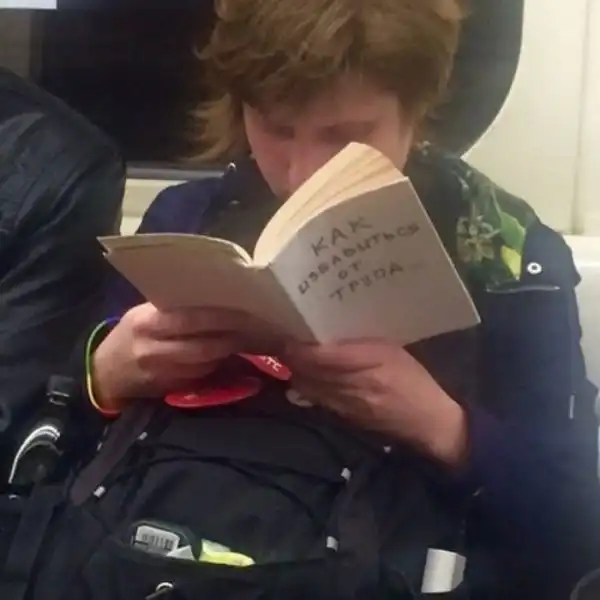 КАК
ИЗБАВИТЬСЯ
ОТ
ТРУПА